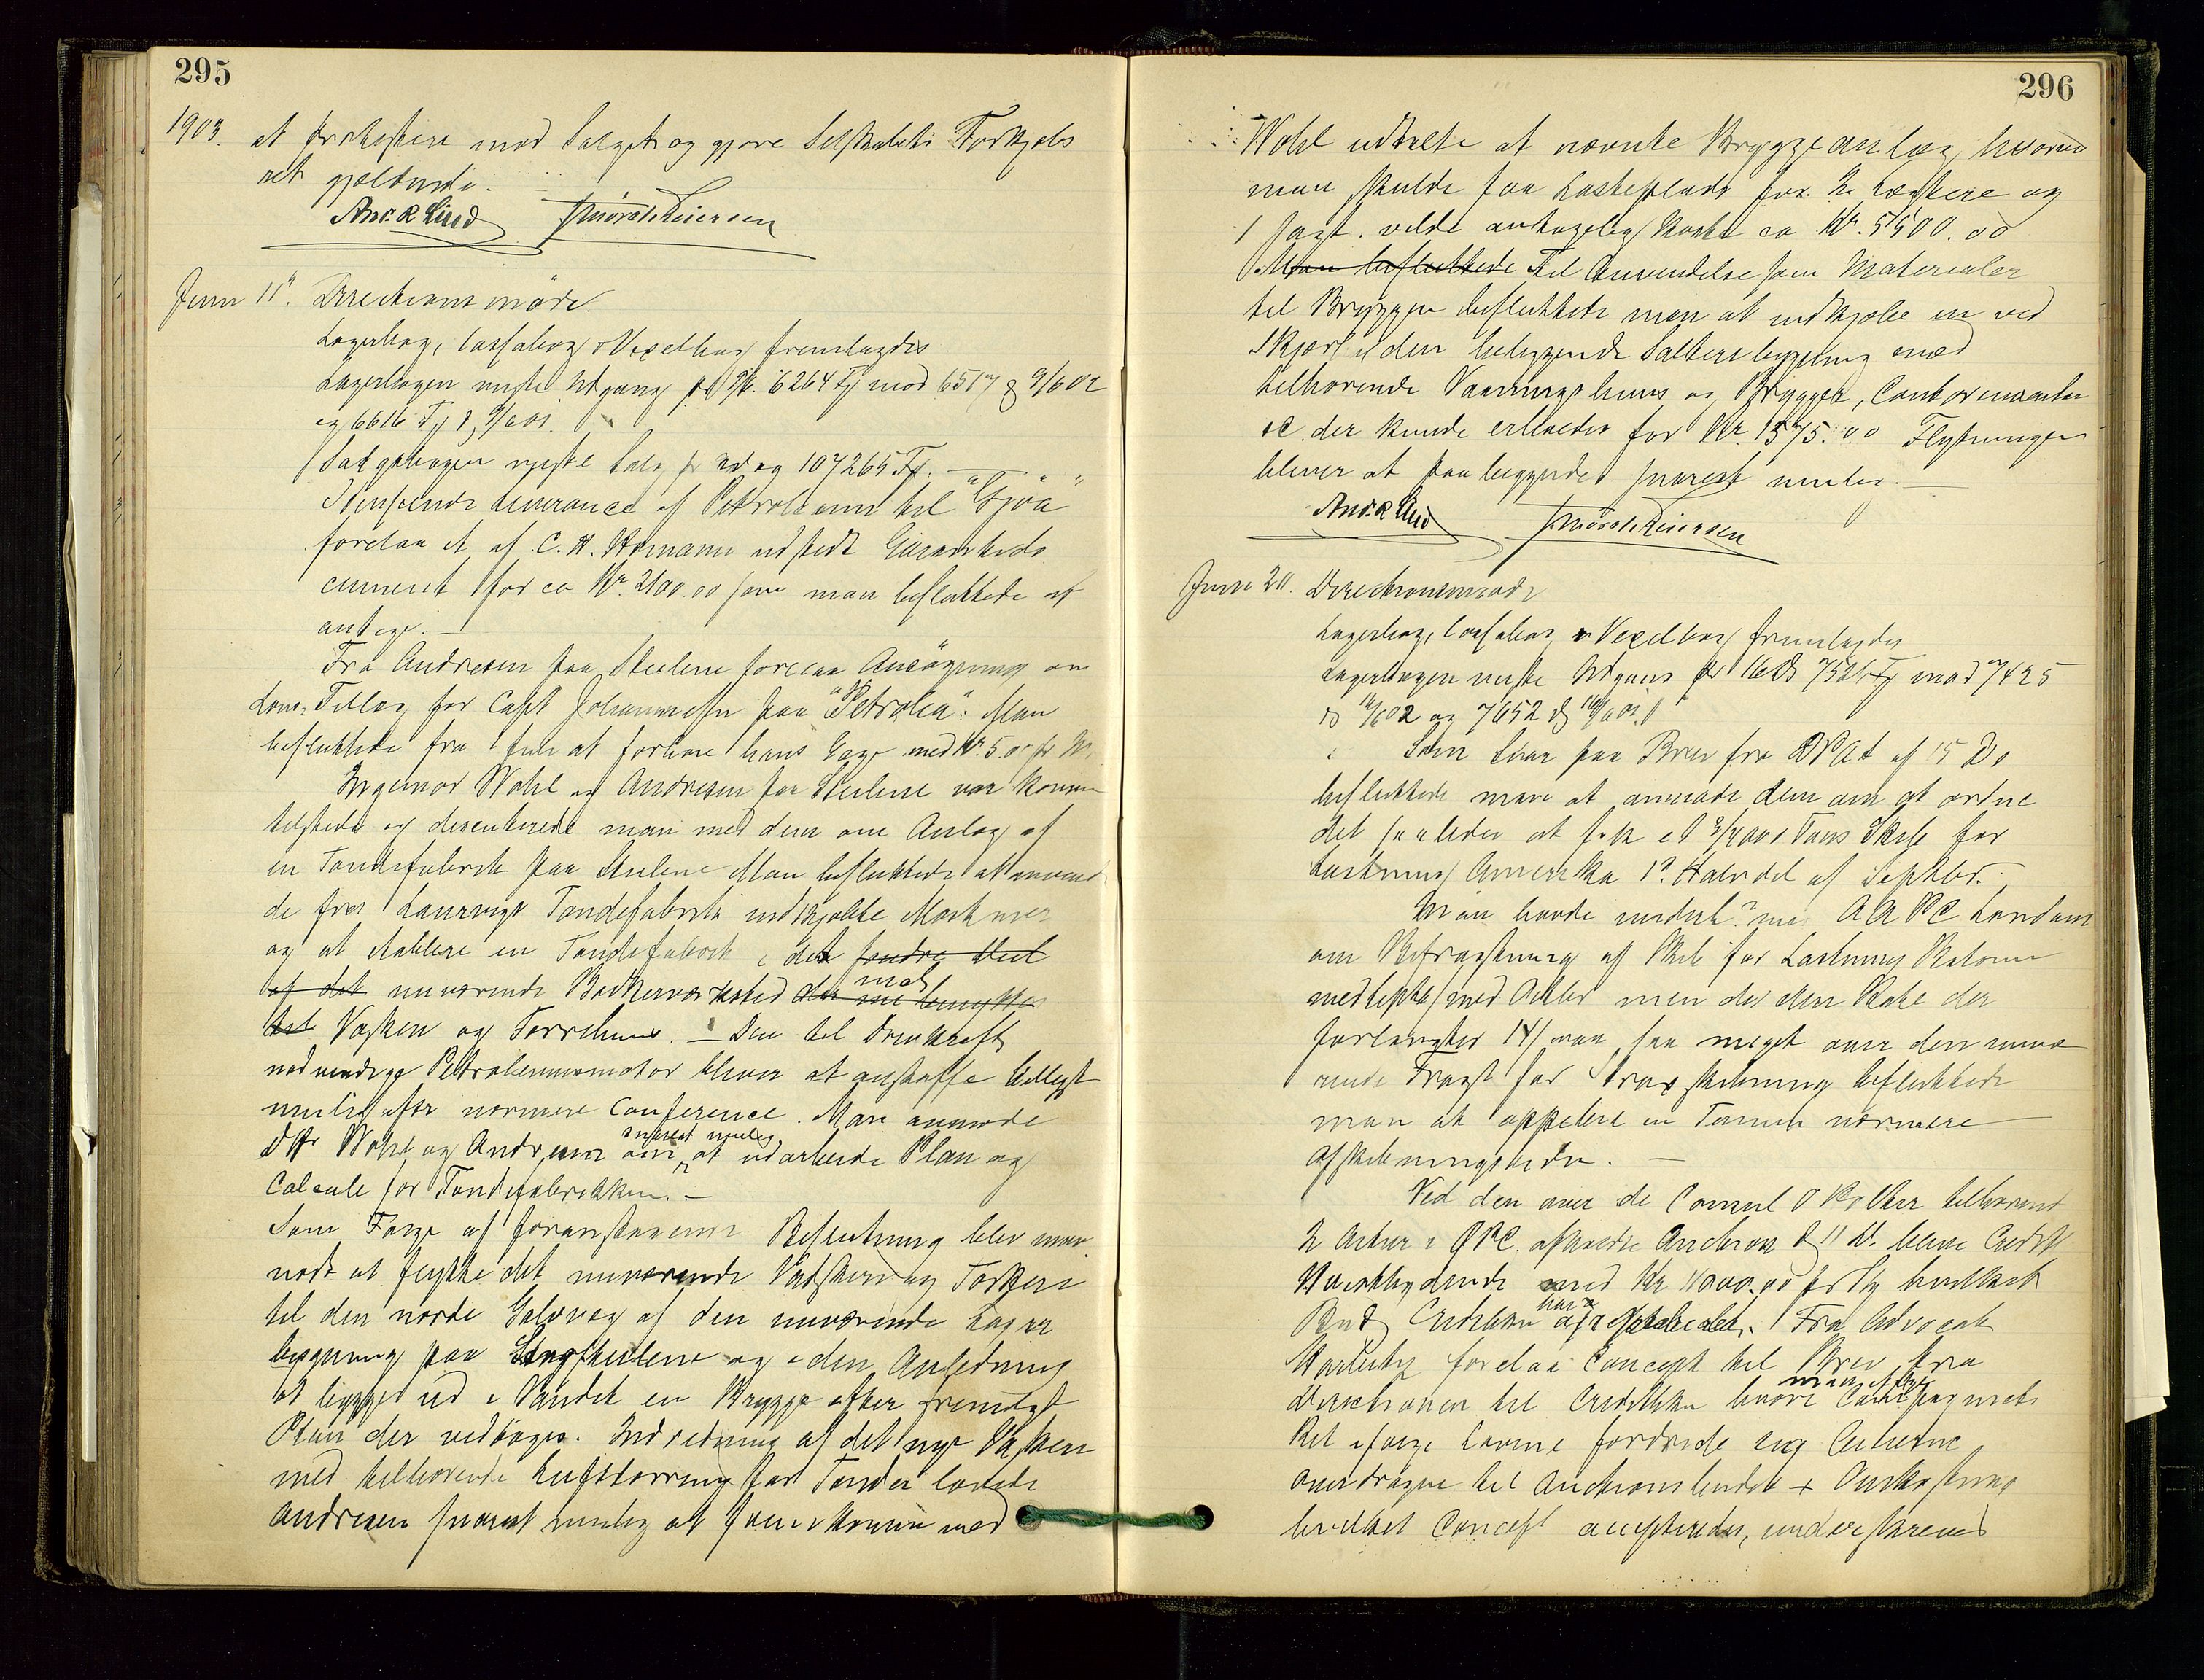 295
1903. at protestere mod Salget og gjøre Selskabets Forkjøbs
ret gjældende.
And. R Lind
Juni 11te. Directionsmøde.
Lagerbog, Cassabog & Vexelbog fremlagdes
Lagerbogen viste Udgang pr 9/6. 6264 Fj mod 6517 9/6 02
og 6616 Fj 9/6 01.
Salgsbogen viste Salg 107265 Fj.
Leverance af Petroleum til "Gjøa"
forelaa et af C. H. Homann udstedt Garantido
cument for ca Kr. 2100.00 som man besluttede at
antage. —
Fra Andresen paa Steilene forelaa Ansøgning om
Løns-Tillæg for Capt Johannessen paa "Petrolea". Man
besluttede fra Juni at forhøie hans Gage med Kr. 5.00 pr M
Ingeniør Wahl og Andresen paa Steilene var kommen
tilstede og discuterede man med dem om Anlæg af
en Tøndefabrik paa Steilene Man besluttede at anven
de fra Laurvigs Tøndefabrik indkjøbte Maskiner
og at etablere en Tøndefabrik i det søndre Deel
af det nuværende Bødkerværksted
Vasken og Tørrehuus. — Den til Drivkraft
nødvendige Petroleumsmotor bliver at anskaffe billigst
mulig efter nærmere Conference. Man anmode
DHr Wahl og Andresen om snarest mulig at udarbeide Plan og
Calcule for Tøndefabrikken. —
Som Følge af foranstaaende Beslutning blev man
nødt at flytte det nuværende Vaskeri og Tørkeri
til den nordre Halvdel af den nuværende Lager
bygning paa Steilene og i den Anledning
at bygge ud i Vandet en Brygge efter fremlagt
Plan der vedtoges. Indredning af det nye Vaskeri
med tilhørende Lufttørring for Tønder lovede
Andresen snarest mulig at fremkomme med
296
Wahl udtalte at nævnte Bryggeanlæg, hvorved
man skulde faa Lasteplads for 2 Lægtere og
1 Jagt. vilde antagelig koste ca Kr. 5500.00
Man besluttede Til Anvendelse som Materialer
til Bryggen besluttede man at indkjøbe en ved
beliggende Salteribygning med
tilhørende Vaaningshuus og Brygger, Contorinventar
&c. der kunde erholdes for Kr. 1575.00 Flytningen
bliver at paabegynde snarest mulig. —
And. R Lind
Juni 20. Directionsmøde
Lagerbog, Cassabog & Vexelbog fremlagdes
Lagerbogen viste Udgang pr 16 Ds 7526 Fj mod 7425
16/6 02 og 7652 16/6 01.
Som Svar paa Brev fra DPAG af 15 Ds
besluttede man at anmode dem om at ordne
det saaledes at fik et Tons Skib for
Lastning Amerika 1ste Halvdel af Septbr.
Man havde underh. med AAPC London
om Befragtning af Skib for Lastning Batoum
med Octbr men da den Rate der
forlangtes 14/ var saa meget over den nuvæ
rende Fragt for besluttede
man at opsætte en Termin nærmere
Afskibningstiden. —
Ved den over de Consul O tilhørende
2 Actier i ØPC. afholdte Auction 11 Ds. blev Credit
høistbydende med Kr 11000.00 pr hvilket
Bud Creditbanken har. Fra Advocat
forelaa Concept til Brev fra
Directionen til Creditbanken hvori man efter Compagniets
Ret ifølge Lovene fordrede sig Actierne
overdragne til Auctionsbudet + Omkostning
hvilket Concept acceptertes, underskreves